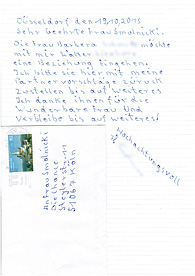 Düsseldorf den 19.10.2015
Sehr geehrte Frau Smolnicki.
Die Frau Barbara möchte
mit mir Walter
eine Beziehung eingehen.
Ich bitte sie hiermit meine
Partner vorschläge zurück
zustellen bis auf weiteres
Ich danke ihnen für die
Wunderbare Frau Und
Verbleibe bis auf weiteres!
Hochachtungsvoll
An Frau Smolnicki
Die Chance
51067 Köln